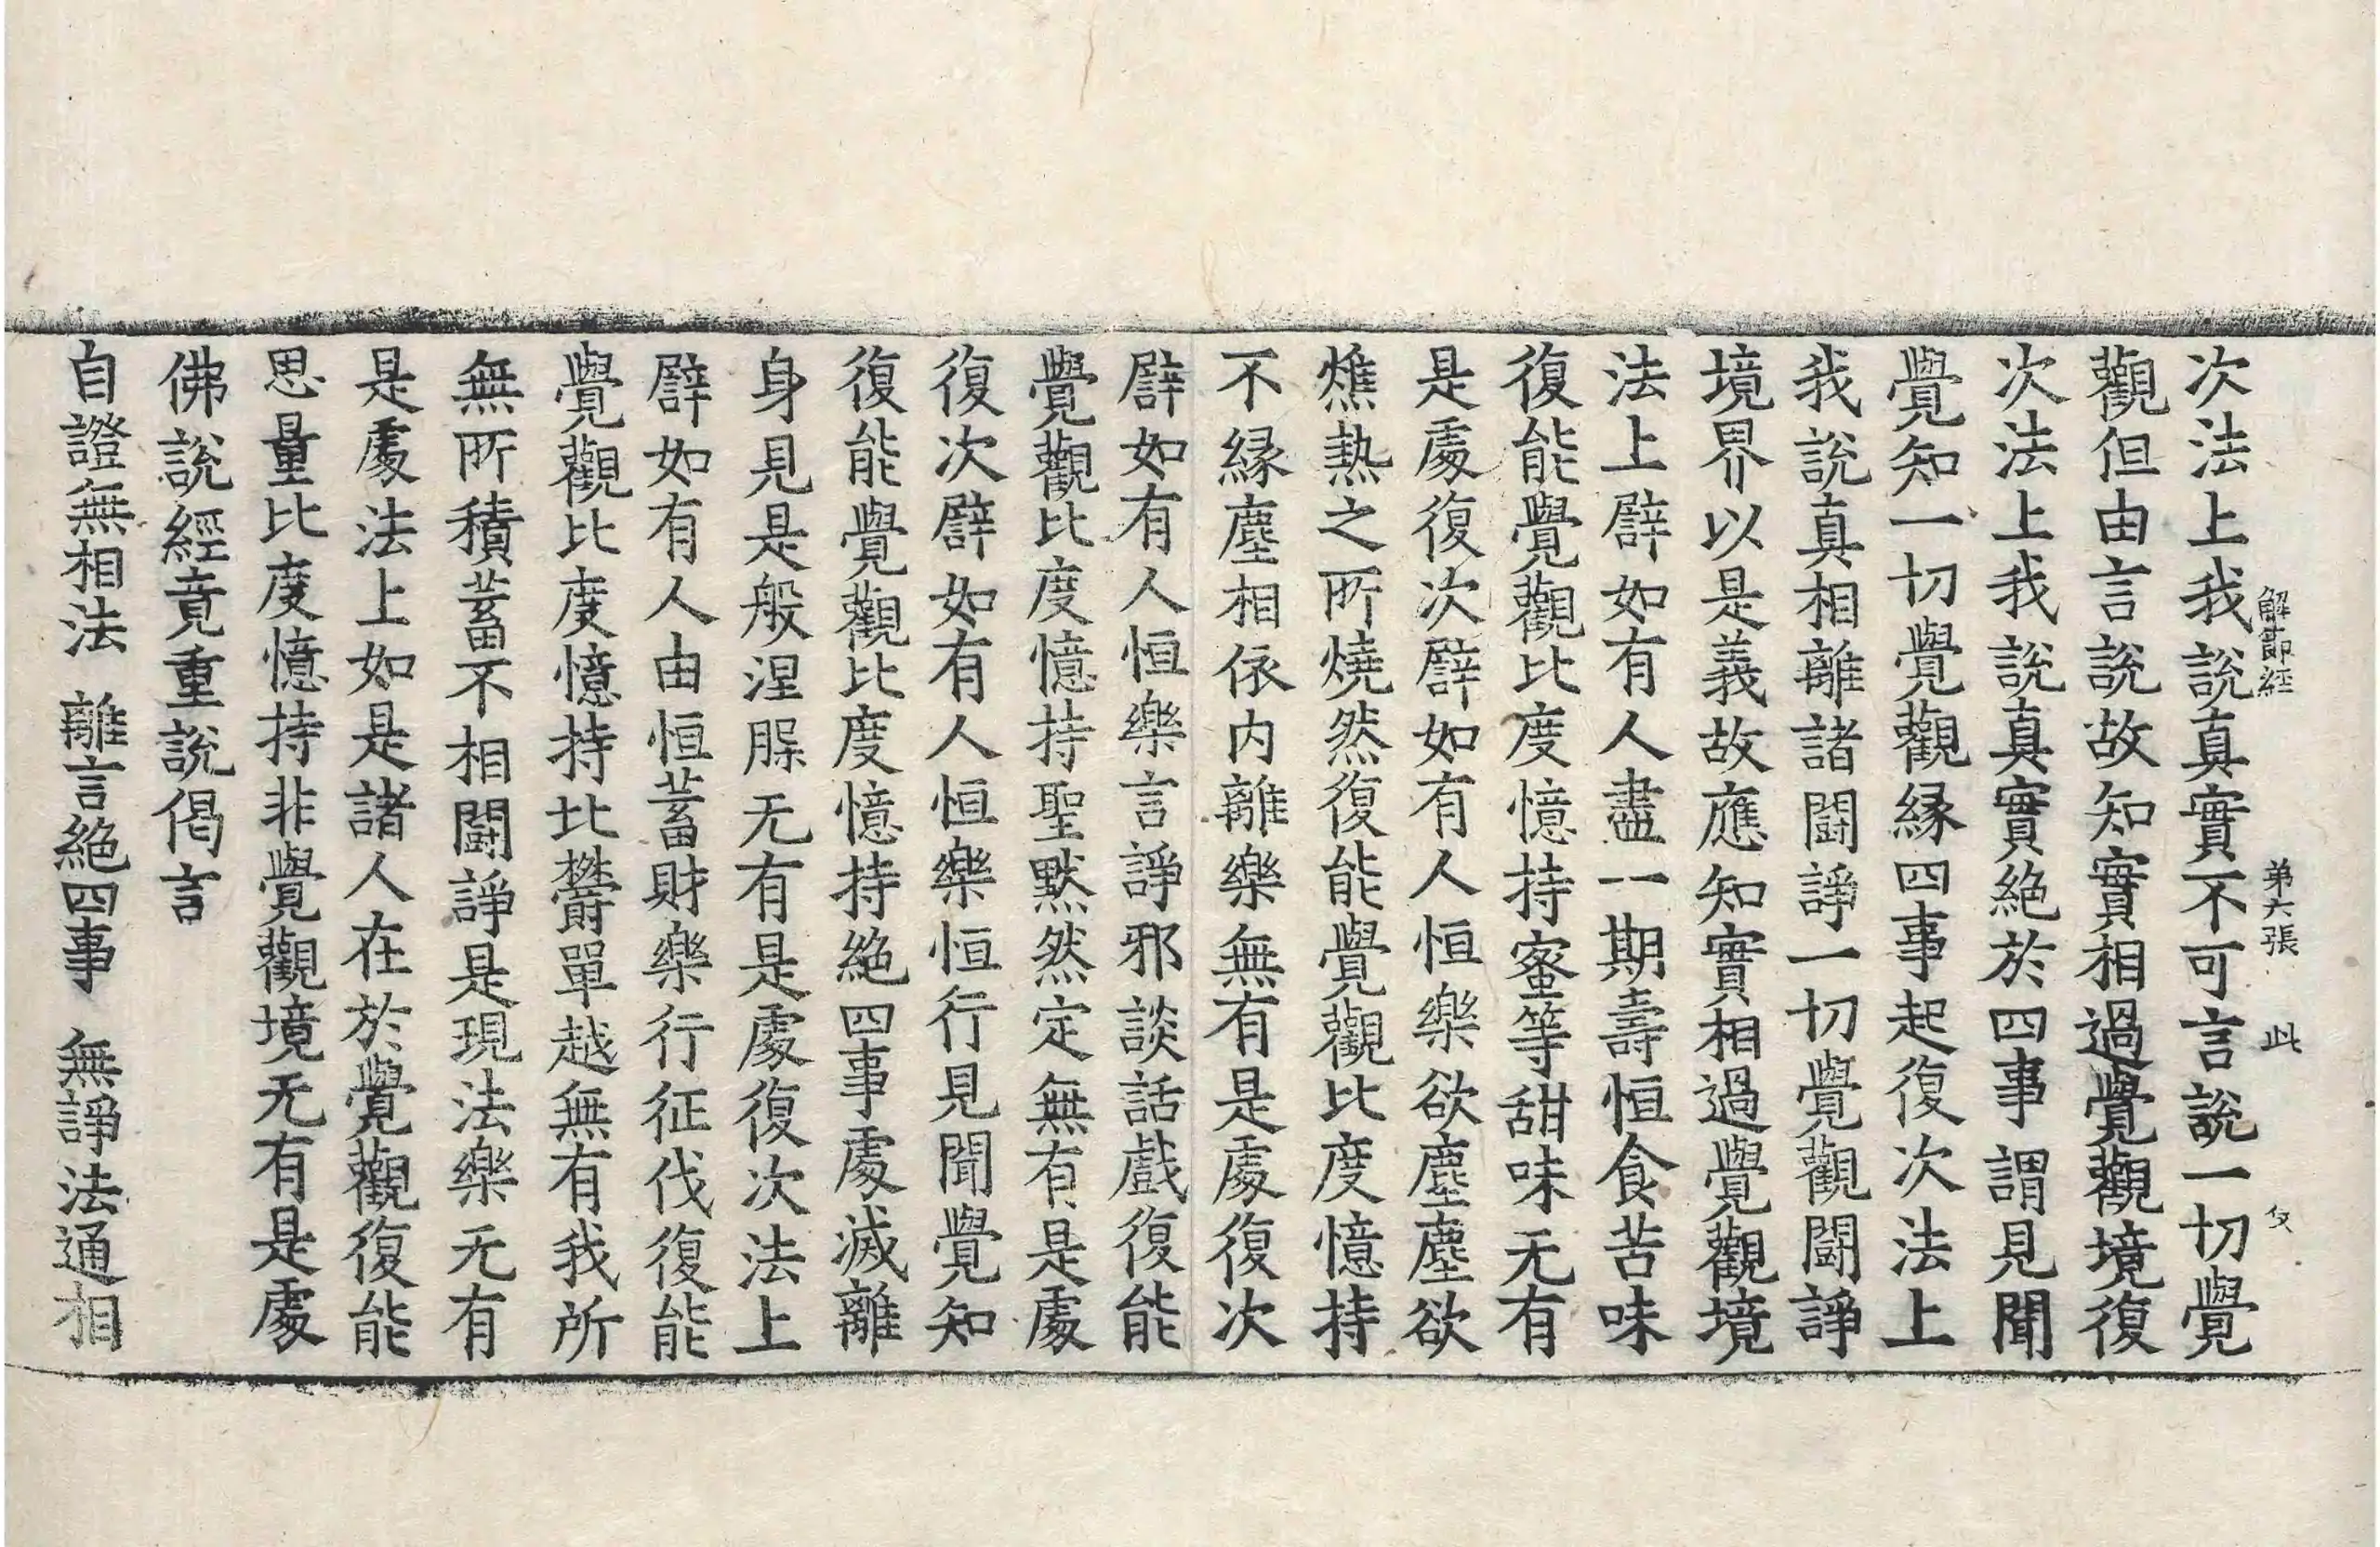 解節經 第六張 此
次法上我說真實不可言說一切覺
觀但由言說故知實相過覺觀境復
次法上我說真實絶於四事謂見聞
覺知一切覺觀縁四事起復次法上
我說真相離諸鬪諍一切覺觀鬪諍
境界以是義故應知實相過覺觀境
法上譬如有人盡一期壽恒食苦味
復能覺觀比度憶持蜜等甜味无有
是處復次譬如有人恒樂欲塵塵欲
燋熱之所燒然復能覺觀比度憶持
不縁塵相依内離樂無有是處復次
譬如有人恒樂言諍邪談話戲復能
覺觀比度憶持聖默然定無有是處
復次譬如有人恒樂恒行見聞覺知
復能覺觀比度憶持絶四事處滅離
身見是般涅槃无有是處復次法上
譬如有人由恒蓄財樂行征伐復能
覺觀比度憶持比欝單越無有我所
無所積蓄不相鬪諍是現法樂无有
是處法上如是諸人在於覺觀復能
思量比度憶持非覺觀境无有是處
佛說經竟重說偈言
自證無相法 離言絶四事 無諍法通相